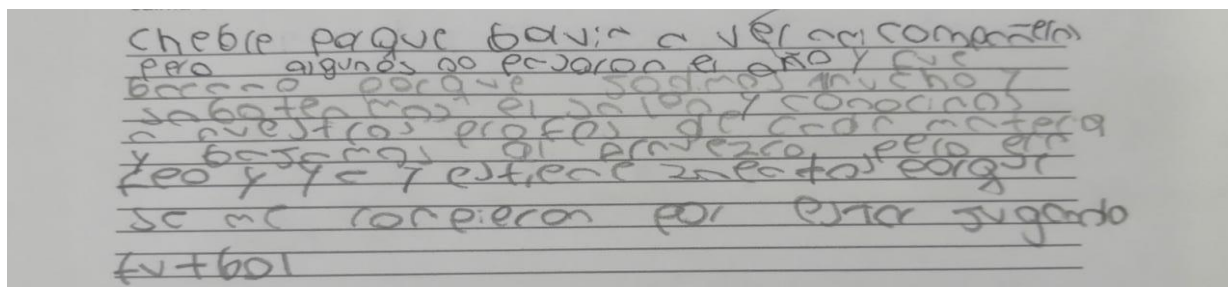 chebre porque bavin a ver a mi compañeros
pero algunos no pasaron el año y fue
bacano porque sodmos mucho y
sabatea mos el salon y conocimos
a nuestros profes de cada matera
y basamos al
feo y y estiene zapatos porque
se me rompieron por estar jugando
futbol